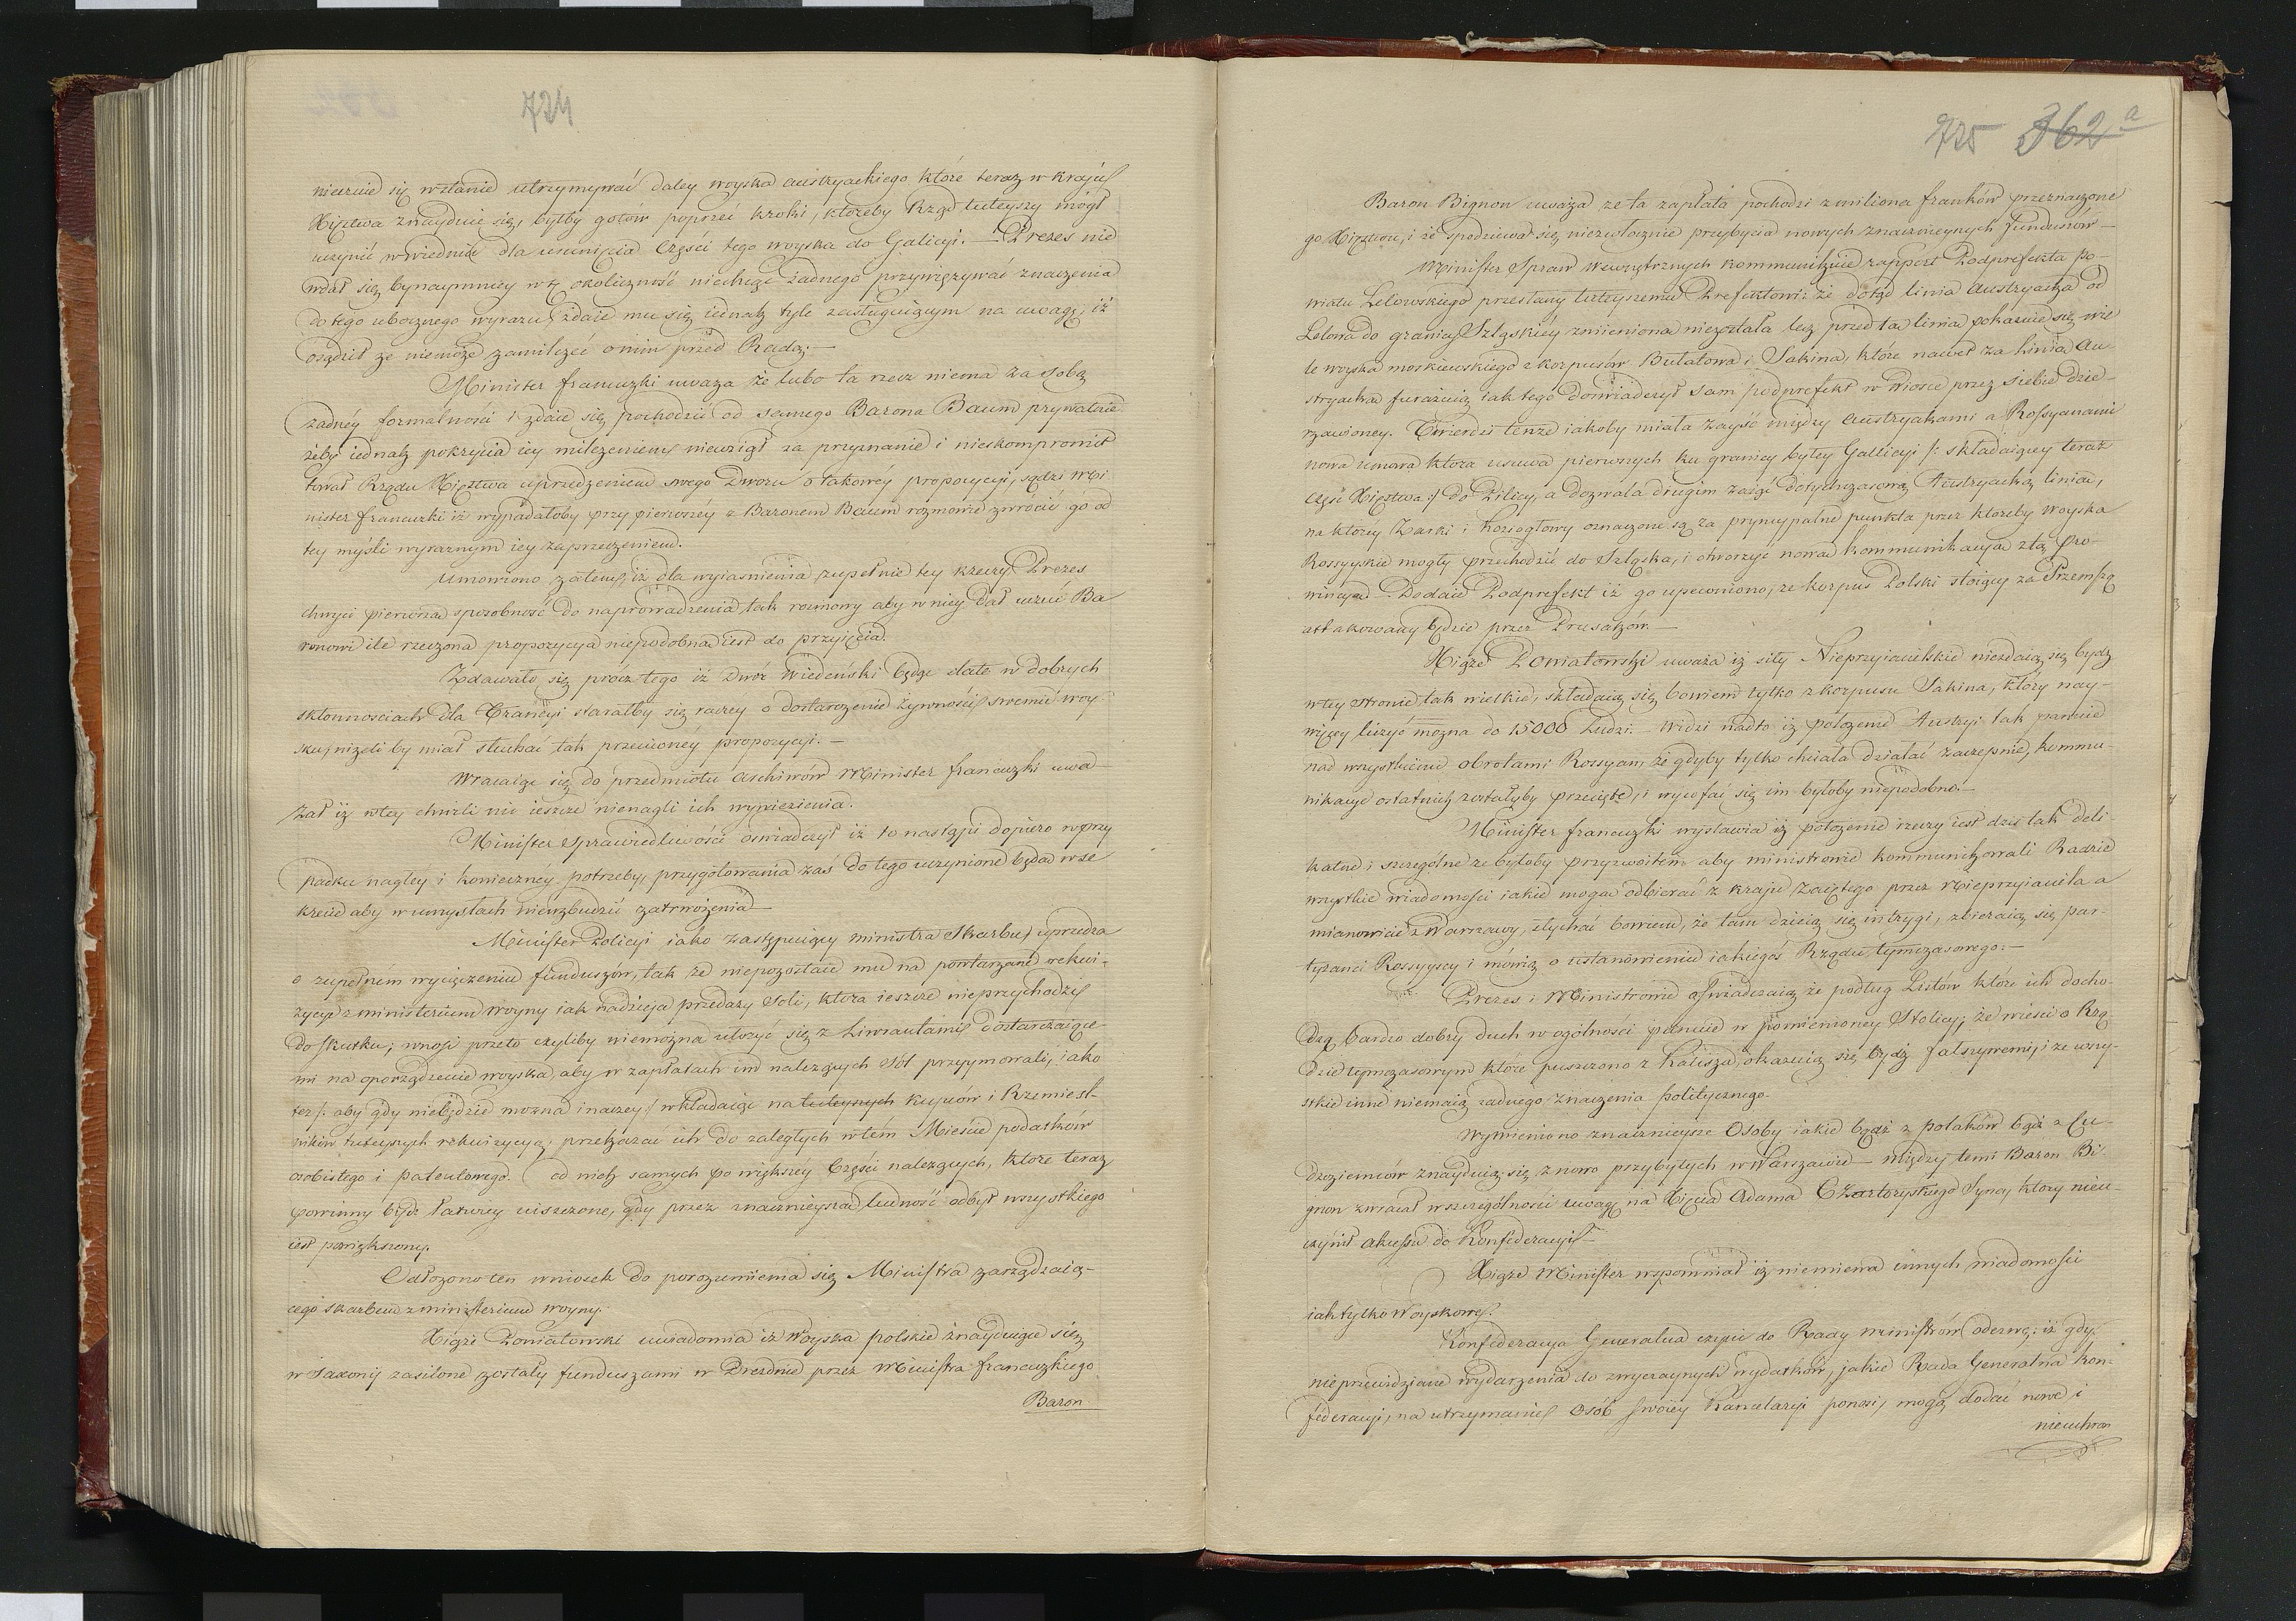 724
nieczuie się wstanie utrzymywać daley woyska austryackiego które teraz w kraju
Xięstwa znayduie się, byłby gotów poprzeć kroki, któreby Rząd tuteyszy mógł
uczynić w Wiedniu dla usunięcia Części tego woyska do Galicyi. — Prezes nie
wdał się bynaymniey w tę okoliczność niechcąc żadnego przywięzywać znaczenia
do tego ubocznego wyrazu, zdaie mu się iednak tyle zasługuiącym na uwagę, iż
osądził że niemoże zamilczeć o nim przed Radą. —
Minister francuzki uważa że lubo ta rzecz niema za sobą
żadnéy formalności i zdaie się pochodzić od samego Barona Baum prywatnie
żeby iednak pokrycia iey milczeniem niewziął za przyznanie i nieskompromit
tował Rządu Xięstwa uprzedzeniem swego Dworu o takowéy propozycyi, sądzi Mi
nister francuzki iż wypadałoby przy pierwszéy z Baronem Baum rozmowie zwrócić go od
tey myśli wyraznym iey zaprzeczeniem.
Umówiono zatem, iż dla wyiasnienia zupełnie tey rzeczy Prezes
chwyci pierwszą sposobność do naprowadzenia tak rozmowy aby w niey dał uczuć Ba
ronowi ile rzeczona propozycya niepodobna iest do przyięcia.
Zdawało się prócz tego iż Dwór Wiedeński będąc stale w dobrych
skłonnosciach dla Francyi starałby się raczey o dostarczenie żywności swemu woy-
sku, niżeli by miał słuchać tak przeciwnéy propozycyi. —
Wracaiąc się do przedmiotu Archiwów Minister francuzki uwa-
żał iż w tey chwili nic ieszcze nienagli ich wywiezienia.
Minister Sprawiedliwości oswiadczył iż to nastąpi dopiero w przy
padku nagłey i koniecznéy potrzeby, przygotowania zaś do tego uczynione będą w se
krecie aby w umysłach niewzbudzić zatrwożenia —
Minister Policyi iako zastępuiący ministra Skarbu, uprzedza
o zupełnem wycięczeniu funduszów, tak że niepozostaie mu na powtarzane rekwi-
zycye z ministerium woyny iak nadzieja przedaży soli, która ieszcze nieprzychodzi
do skutku; wnosi przeto czyliby niemożna ułożyć się z Liwerantami dostarczaiące-
mi na oporządzenie woyska, aby w zapłatach im należących sól przyymowali, iako
też /: aby gdy niebędzie można inaczey :/ wkładaiąc na tuteyszych kupców i Rzemiesl-
ników tuteyszych rekwizycyą; przekazać ich do zaległych w tém Miescie podatków
osobistego i patentowego. od nich samych po większéy Części należących, które teraz
powinny bydź łatwiey uiszczone, gdy przez znacznieyszą ludność odbyt wszystkiego
iest powiększony.
Odłożono ten wniosek do porozumienia się Ministra zarządzaią-
cego skarbem z ministerium woyny.
Xiąże Poniatowski uwiadomia iż Woyska polskie znayduiące się
w Saxonij zasilone zostały funduszami w Dreznie przez Ministra francuzkiego
Baron
725 362 a
Baron Bignon uważa ze ta zapłata pochodzi z miliona franków przeznaczone
go Xięstwu, i że spodziewa się niezwłocznie przybycia nowych znacznieyszych funduszów —
Minister Spraw Wewnętrznych kommunikuie rapport Podprefekta po-
wiatu Lelowskiego przesłany tuteyszemu Prefektowi: że dotąd linia Austryacka od
Lelowa do granicy Szląskiéy zmieniona niezostała lecz przed tą linią pokazuie się wie
le woyska moskiewskiego z korpusów Bułatowa i Sakina, które nawet za linią Au-
stryacką furażuią iak tego doświadczył sam podprefekt w Wiosce przez siebie dzie-
rzawioney. Twierdzi tenże iakoby miała zayść między Austryakami a Rossyanami
nowa umowa która usuwa pierwszych ku granicy byłey Gallicyi /: składaiącey teraz
Część Xięstwa :/ do Pilicy, a dozwala drugim zaiąć dotychczasową Austryacką linią,
na któréy Żarki i Koziogłowy oznaczone są za pryncypalne punkta przez któreby woyska
Rossyyskie mogły przechodzić do Szląska, i otworzyć nową kommunikacyą z tą Pro-
wincyą. Dodaie Podprefekt iż go upewniono, że korpus Polski stoiący za Przemszą
attakowany będzie przez Prusaków. —
Xiąże Poniatowski uważa iż siły Nieprzyiacielskie niezdaią się bydź
w tey stronie tak wielkie, składaią się bowiem tylko z korpusu Sakina, który nay-
więcey liczyć można do 15000 Ludzi. — Widzi nadto iż położenie Austryi tak panuie
nad wszystkiemi obrotami Rossyan, że gdyby tylko chciała działać zaczepnie, kommu-
nikacye ostatnich zostałyby przecięte, i wycofać się im byłoby niepodobno. —
Minister francuzki wystawia iż położenie rzeczy iest dziś tak deli-
katne i szczególne że byłoby przyzwoitém aby ministrowie kommunikowali Radzie
wszystkie wiadomości iakie mogą odbierać z kraju zaiętego przez Nieprzyiaciela a
mianowicie z Warszawy, słychać bowiem, że tam dzieią się intrygi, zbieraią się par-
tyzanci Rossyyscy i mówią o ustanowieniu iakiegoś Rządu tymczasowego. —
Prezes i Ministrowie oświadczaią że podług Listów które ich docho-
dzą bardzo dobry duch w ogólności panuie w pomienioney Stolicy, że wieści o Rzą-
dzie tymczasowym które puszczono z Kalisza, okazuią się bydź fałszywemi, i ze wszy-
stkie inne niemaią żadnego znaczenia politycznego.
Wymieniono znacznieysze Osoby iakie bądź z polaków bądź z Cu-
dzoziemców znayduią się z nowo przybyłych w Warszawie — między temi Baron Bi-
gnon zwracał w szczególności uwagę na Xięcia Adama Czartoryskiego Syna, który nieu-
czynił akcessu do Konfederacyi —
Xiąże Minister wspomniał iż niemiewa innych wiadomości
iak tylko Woyskowe.
Konfederacya Generalna czyni do Rady ministrów odezwę; iż gdy
nieprzewidziane wydarzenia do zwyczaynych wydatków, jakie Rada Generalna kon-
federacyi, na utrzymanie Osób swoiey Kancelaryi ponosi, mogą dodać nowe i
nieuchron